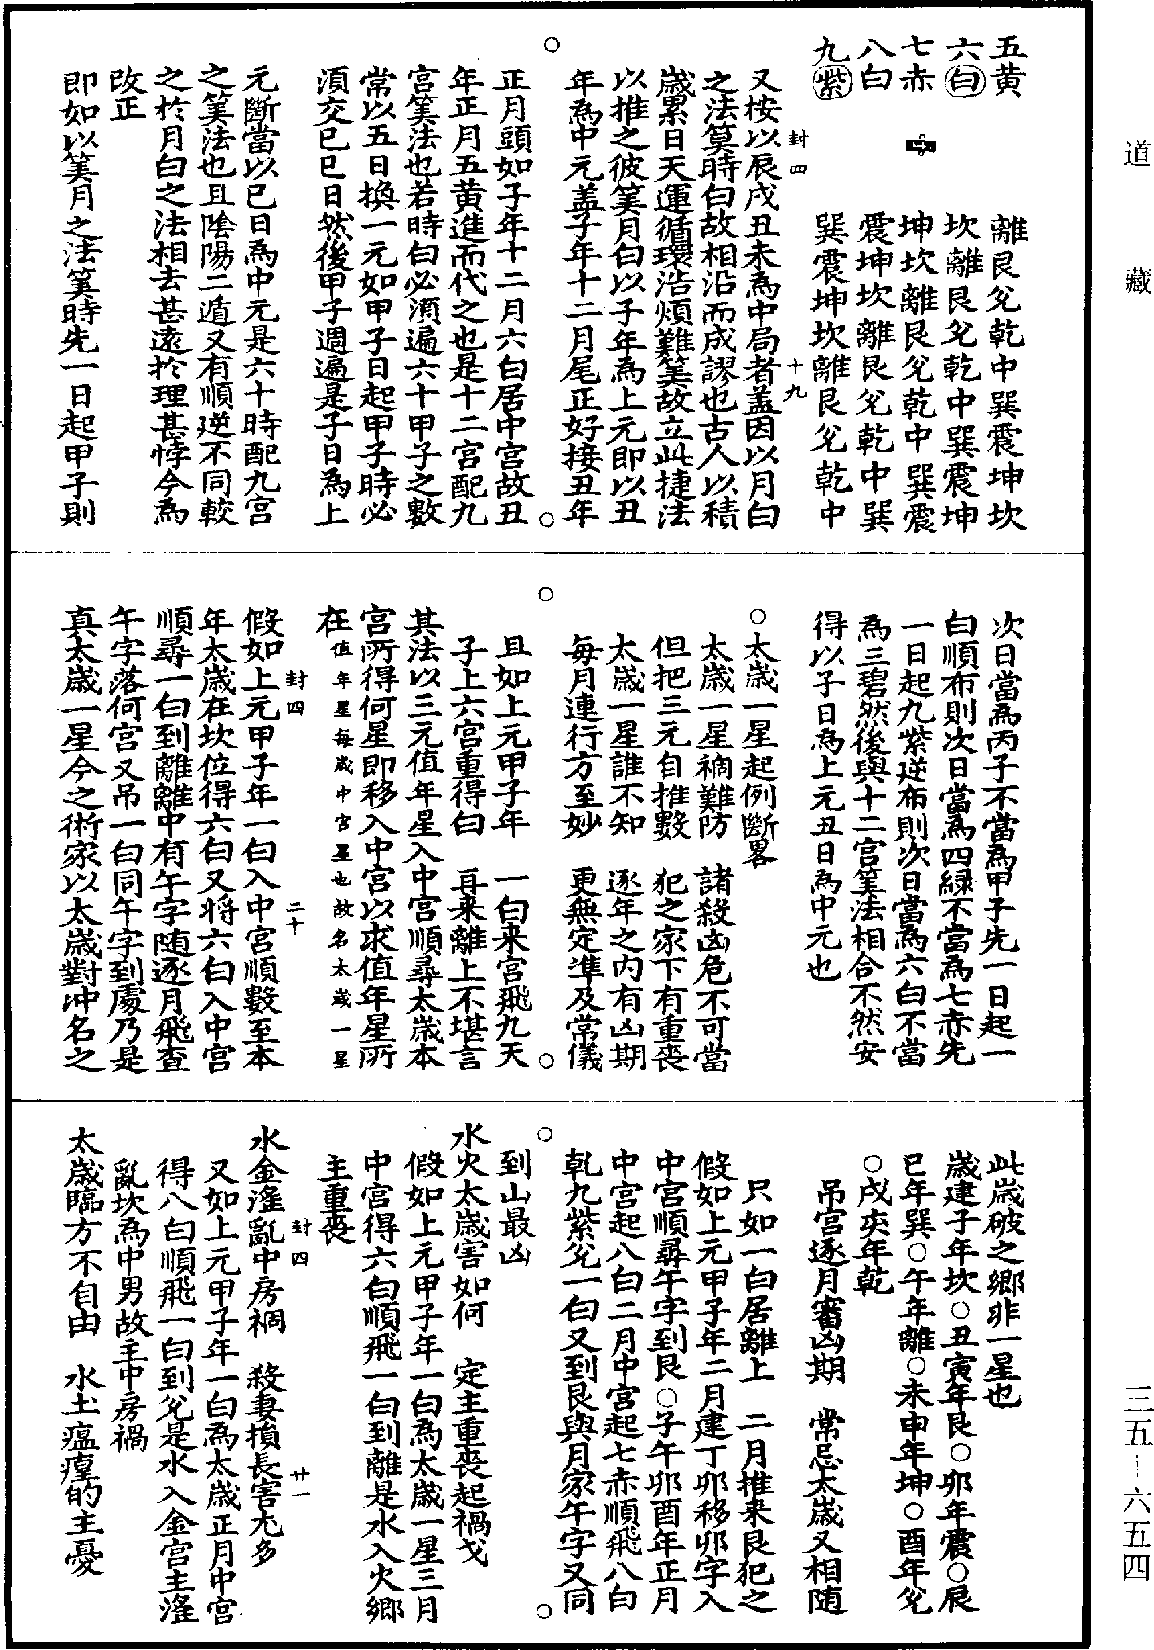 五黃　離艮兌乾中巽震坤坎
六白　坎離艮兌乾中巽震坤
七赤　中　坤坎離艮兌乾中巽震
八白　震坤坎離艮兌乾中巽
九紫　巽震坤坎離艮兌乾中
封四　十九
又按以辰戌丑未為中局者蓋因以月白
之法筭時白故相沿而成謬也古人以積
歲累日天運循環浩煩難筭故立此捷法
以推之彼筭月白以子年為上元即以丑
年為中元盖子年十二月尾正好接丑年
正月頭如子年十二月六白居中宮故丑
年正月五黃進而代之也是十二宮配九
宮筭法也若時白必須遍六十甲子之數
常以五日換一元如甲子日起甲子時必
須交己巳日然後甲子週遍是子日為上
元斷當以巳日為中元是六十時配九宮
之筭法也且陰陽二遁又有順逆不同較
之於月白之法相去甚遠於理甚悖今為
改正
即如以筭月之法筭時先一日起甲子則
次日當為丙子不當為甲子先一日起一
白順布則次日當為四綠不當為七赤先
一日起九紫逆布則次日當為六白不當
為三碧然後與十二宮筭法相合不然安
得以子日為上元丑日為中元也
○太歲一星起例斷畧
太歲一星禍難防　諸殺凶危不可當
但把三元自推數　犯之家下有重喪
太歲一星誰不知　逐年之内有凶期
每月連行方至妙　更無定準及常儀
且如上元甲子年　一白來宮飛九天
子上六宮重得白　再來離上不堪言
其法以三元值年星入中宮順尋太歲本
宮所得何星即移入中宮以求值年星所
在值年星每歲中宮星也故名太歲一星
封四　二十
假如上元甲子年一白入中宮順數至本
年太歲在坎位得六白又將六白入中宮
順尋一白到離離中有午字隨逐月飛查
午字落何宮又吊一白同午字到處乃是
真太歲一星今之術家以太歲對冲名之
此歲破之鄉非一星也
歲建子年坎○丑寅年艮○卯年震○辰
巳年巽○午年離○未申年坤○酉年兌
○戌亥年乾
吊宮逐月審凶期　常忌太歲又相隨
只如一白居離上　二月推來艮犯之
假如上元甲子年二月建丁卯移卯字入
中宮順尋午字到艮○子午卯酉年正月
中宮起八白二月中宮起七赤順飛八白
乾九紫兌一白又到艮與月家午字又同
到山最凶
水火太歲害如何　定主重喪起禍戈
假如上元甲子年一白為太歲一星三月
中宮得六白順飛一白到離是水入火鄉
主重喪
封四　廿一
水金滛亂中房禍　殺妻損長害尤多
又如上元甲子年一白為太歲正月中宮
得八白順飛一白到兌是水入金宮主滛
亂坎為中男故主中房禍
太歲臨方不自由　水土瘟㾮的主憂
道藏
三五—六五四